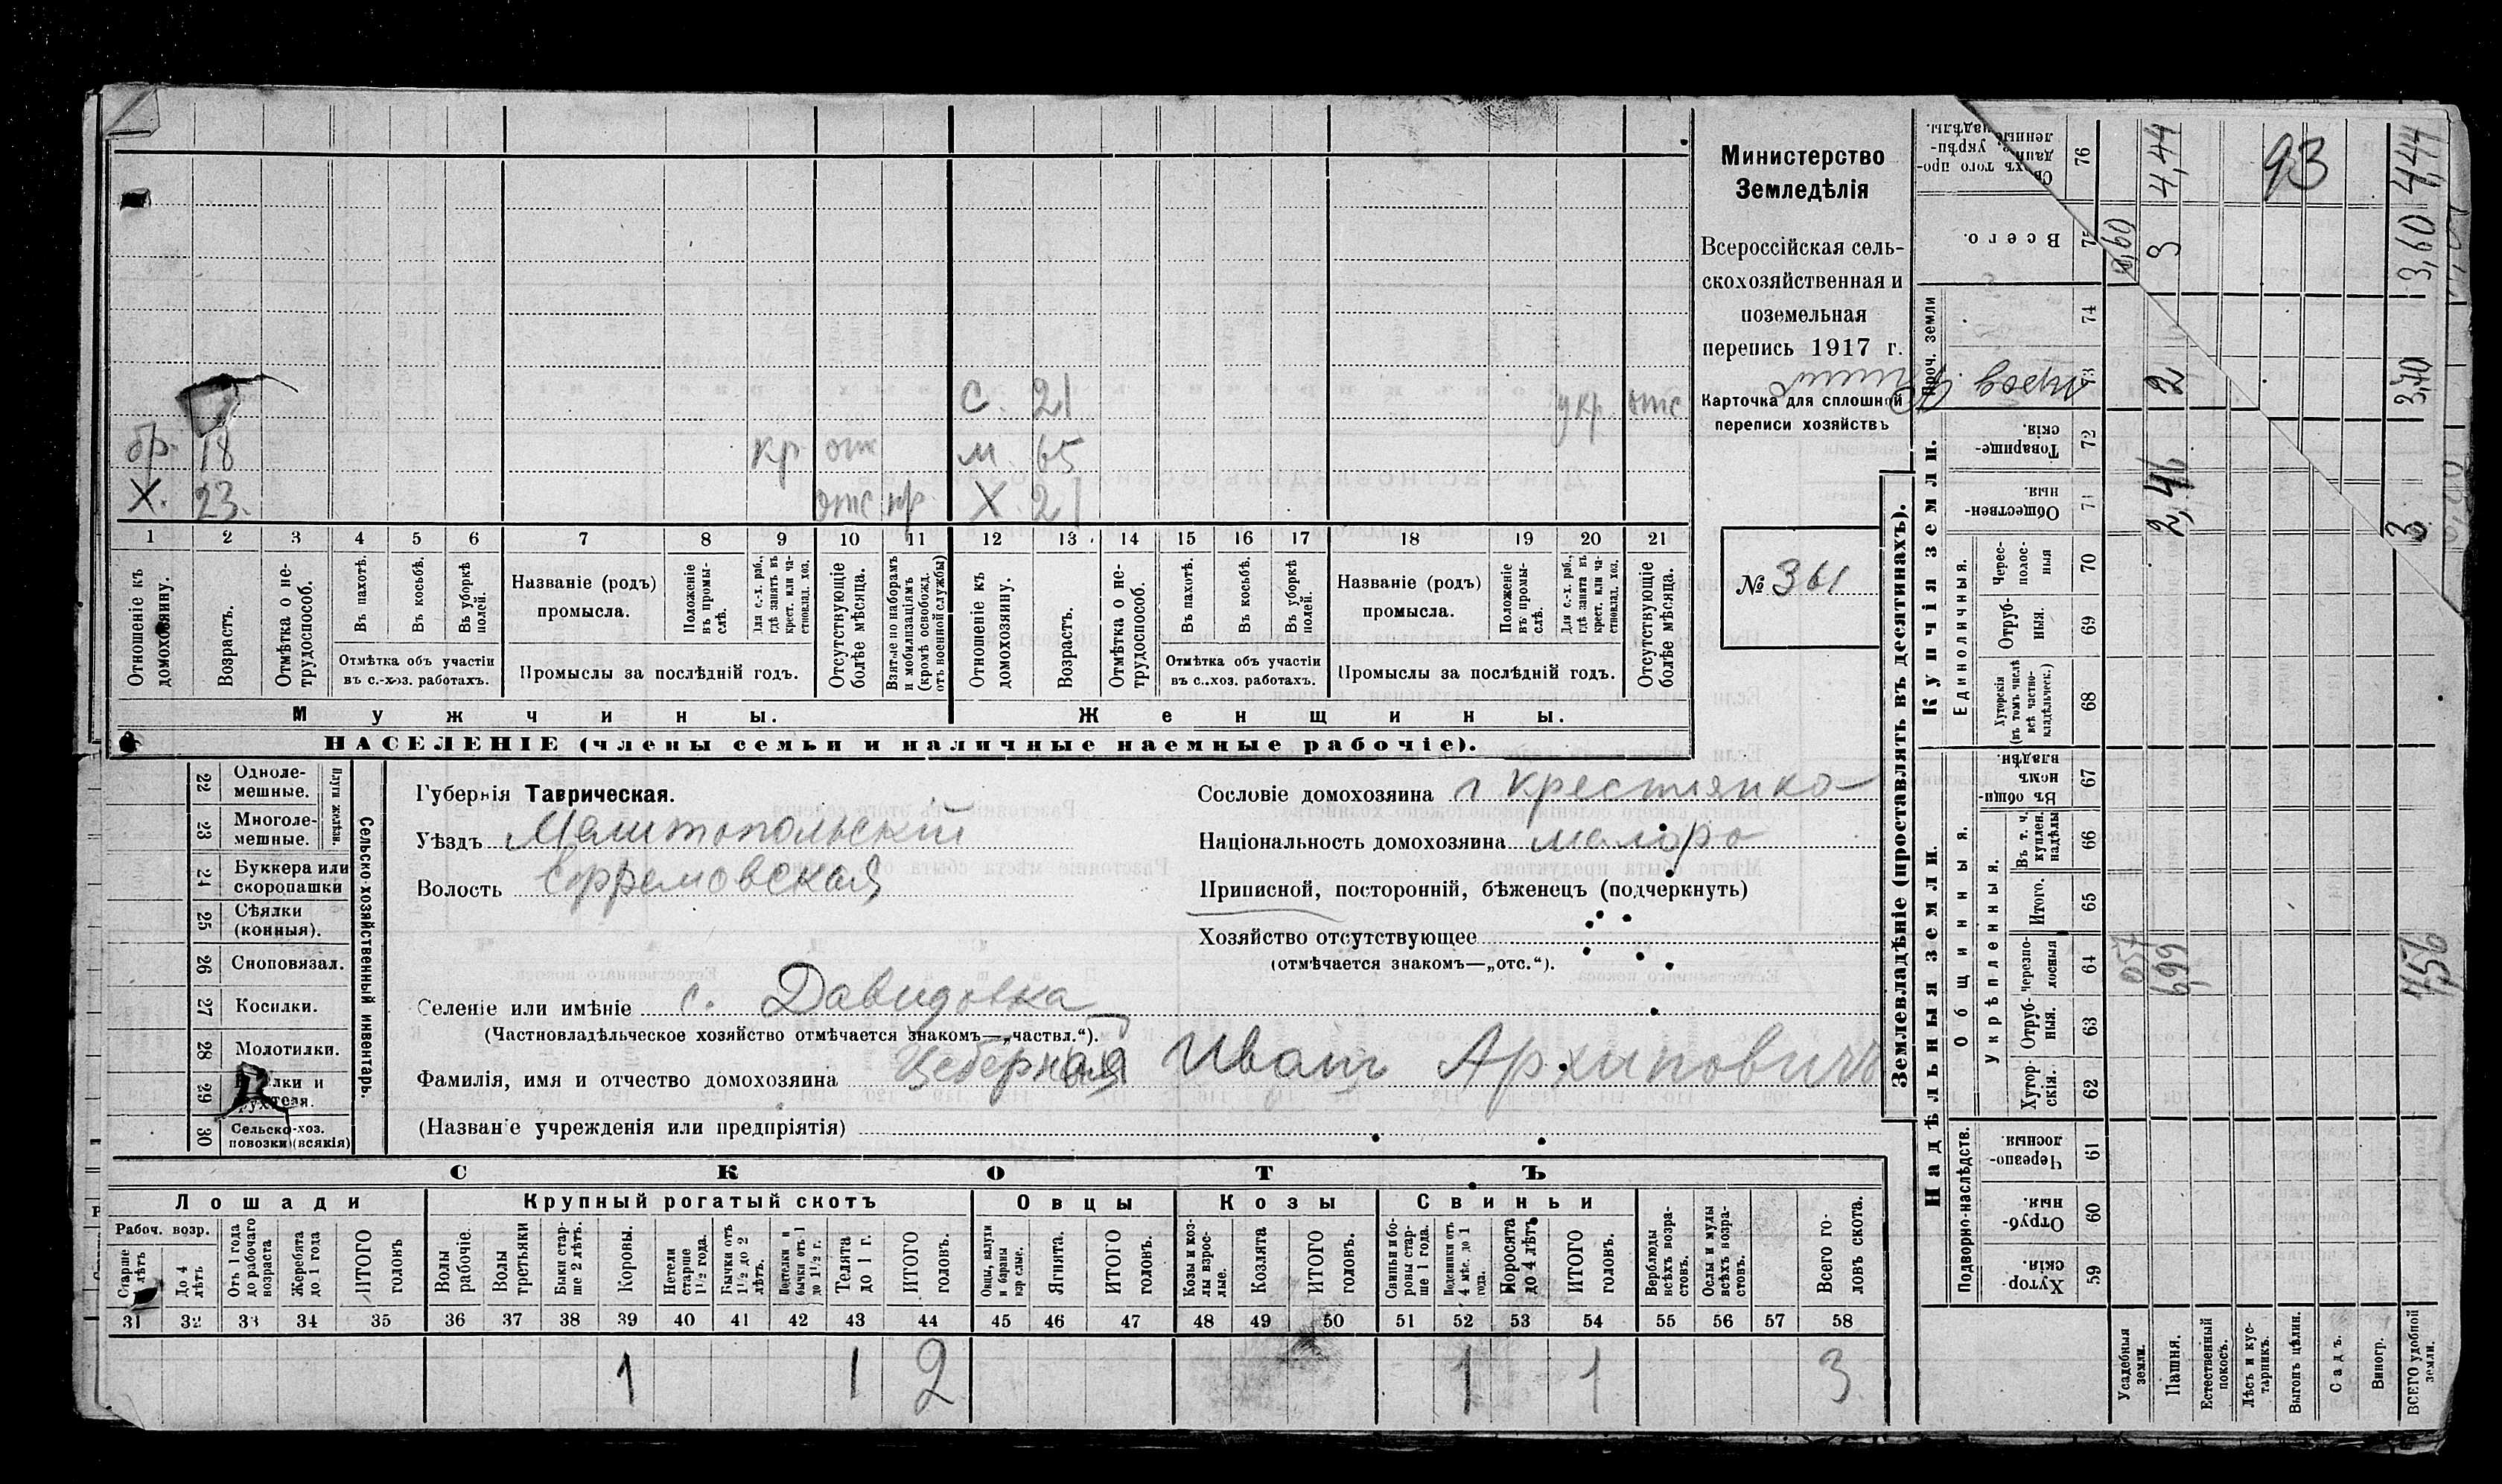 Министерство
Земледѣлія
Всероссійская сель-
скохозяйственная и
поземельная
перепись 1917 г.
Карточка для сплошной
переписи хозяйствъ
№ 361
С. 21 укр. отс
бр. 18 кр отс м. 65
Х. 23. отс кр. Х. 21
1 2 3 4 5 6 7 8 9 10 11 12 13 14 15 16 17 18 19 20 21
Отношеніе къ домохозяину.
Возрастъ.
Отмѣтка о не-трудоспособ.
Въ пахотѣ.
Въ косьбѣ.
Въ уборкѣ полей.
Отмѣтка объ участіи
въ с.-хоз. работахъ.
Названіе (родъ)
промысла.
Положеніе въ промы-слѣ.
Для с.-х. раб., гдѣ занятъ въ крест. или ча-стновлад. хоз.
Промыслы за послѣдній годъ.
Отсутствующіе болѣе мѣсяца.
Взятые по наборамъ и мобилизаціямъ (кромѣ освобожд. отъ военной службы)
Отношеніе къ домохозяину.
Возрастъ.
Отмѣтка о не-трудоспособ.
Въ пахотѣ.
Въ косьбѣ.
Въ уборкѣ полей.
Отмѣтка объ участіи
въ с.-хоз. работахъ.
Названіе (родъ)
промысла.
Положеніе въ промы-слѣ.
Для с.-х. раб., гдѣ занятъ въ крест. или ча-стновлад. хоз.
Промыслы за послѣдній годъ.
Отсутствующіе болѣе мѣсяца.
Мужчины. Женщины.
НАСЕЛЕНІЕ (члены семьи и наличные наемные рабочіе).
22 Одноле-мешные.
23 Многоле-мешные.
Плуги желѣзн.
24 Буккера или скоропашки
25 Сѣялки (конныя).
26 Сноповязал.
27 Косилки.
28 Молотилки.
29
30 Сельско-хоз. повозки (всякія)
Сельско-хозяйственный инвентарь.
Губернія Таврическая.
Уѣздъ Мелитопольскій
Волость Ефремовская
Сословіе домохозяина крестьянка
Національность домохозяина малоро
Приписной, посторонній, бѣженецъ (подчеркнуть)
Хозяйство отсутствующее
(отмѣчается знакомъ—„отс.“).
Селеніе или имѣніе с. Давидовка
(Частновладѣльческое хозяйство отмѣчается знакомъ—„частвл.“).
Фамилія, имя и отчество домохозяина Цеберная Иванъ Архиповичъ
(Названіе учрежденія или предпріятія)
СКОТЪ
Лошади Крупный рогатый скотъ Овцы Козы Свиньи
Рабоч. возр.
Старше лѣтъ
До 4 лѣтъ
Отъ 1 года до рабочаго возраста
Жеребята до 1 года
ИТОГО головъ
Волы рабочіе.
Волы третьяки
Быки стар-ше 2 лѣтъ.
Коровы.
Нетели старше 1½ года.
Бычки отъ 1½ до 2 лѣтъ.
Телята до 1 г.
ИТОГО головъ.
Овцы, валухи и бараны взрослые.
Ягнята.
ИТОГО головъ.
Козы и коз-лы взрос-лые.
Козлята
ИТОГО головъ.
Свиньи и бо-ровы стар-ше 1 года.
Подсвинки отъ 4 мѣс. до 1 года.
Поросята до 4 лѣтъ
ИТОГО головъ.
Верблюды всѣхъ возра-стовъ.
Ослы и мулы всѣхъ возра-стовъ.
Всего го-ловъ скота.
31 32 33 34 35 36 37 38 39 40 41 42 43 44 45 46 47 48 49 50 51 52 53 54 55 56 57 58
1 1 2 1 1 3
Землевладѣніе (проставлять въ десятинахъ).
Надѣльныя земли.
Купчія земли.
Проч. земли
Подворно-наслѣдств.
Общинныя.
Укрѣпленныя.
Единоличныя.
Хутор-скія. 59
Отруб-ныя. 60
Черезпо-лосныя. 61
Хутор-скія. 62
Отруб-ныя. 63
Черезпо-лосныя 64
Итого. 65
Въ т. ч. куплен. надѣлы 66
Въ общин-номъ владѣн. 67
Хуторскія (въ томъ числѣ всѣ частно-владѣльческ.) 68
Отруб-ныя 69
Черес-полос-ныя 70
Обществен-ныя. 71
Товарище-скія. 72
73
74
Всего. 75
76
Усадебныя земли.
Пашня.
Естественный покосъ.
Лѣсъ и кус-тарникъ.
Выгонъ цѣлин.
Садъ.
Виногр.
ВСЕГО удобной земли.
057
699
756
2
3 4,44
93
3,60 4,44